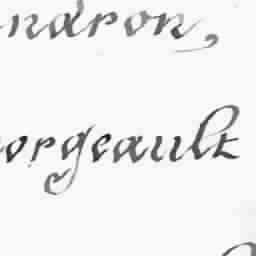 ndron,
orgeault